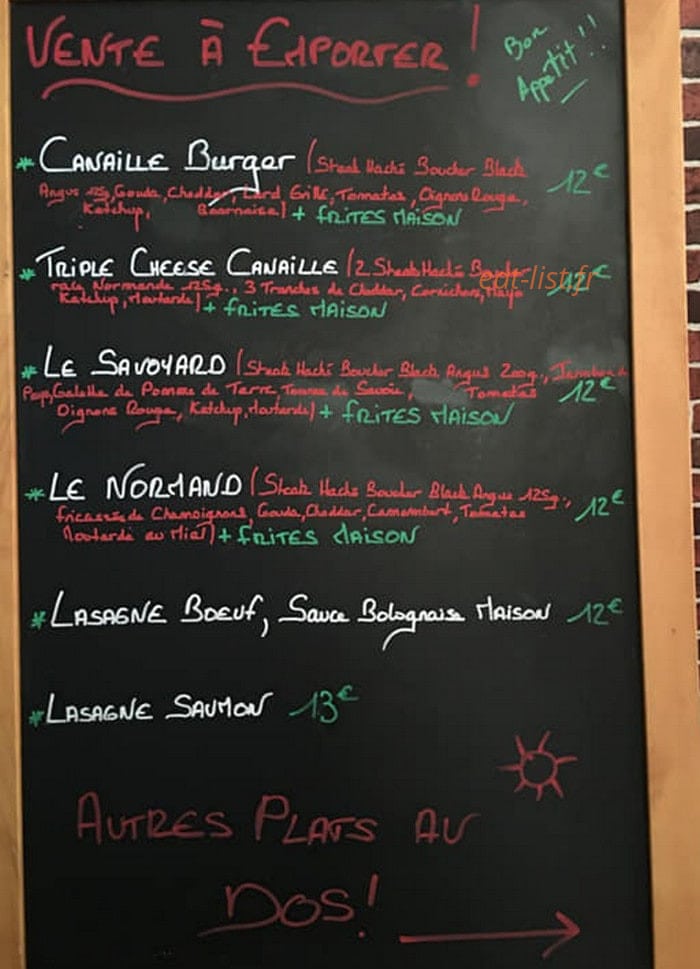 VENTE À EMPORTER !
Bon
Appétit !!
* CANAILLE Burger (Steak Haché Boucher Black
Angus 125g, Gouda, Cheddar, Lard Grillé, Tomates, Oignons Rouge, 12€
Ketchup, Bearnaise) + FRITES MAISON
* TRIPLE CHEESE CANAILLE (2 Steak Haché Boucher
eat-list.fr
race Normande 125g., 3 Tranches de Cheddar, Cornichon, Mayo 12€
Ketchup, Moutarde) + FRITES MAISON
* LE SAVOYARD (Steak Haché Boucher Black Angus 200g., Jambon de
Pays, Galette de Pomme de Terre, Tomme de Savoie, Tomates 12€
Oignons Rouge, Ketchup, Moutarde) + FRITES MAISON
* LE NORMAND (Steak Haché Boucher Black Angus 125g.,
fricassée de Champignons, Gouda, Cheddar, Camembert, Tomates 12€
Moutarde au Miel) + FRITES MAISON
* LASAGNE BOEUF, Sauce Bolognaise MAISON 12€
* LASAGNE SAUMON 13€
AUTRES PLATS AU
DOS !